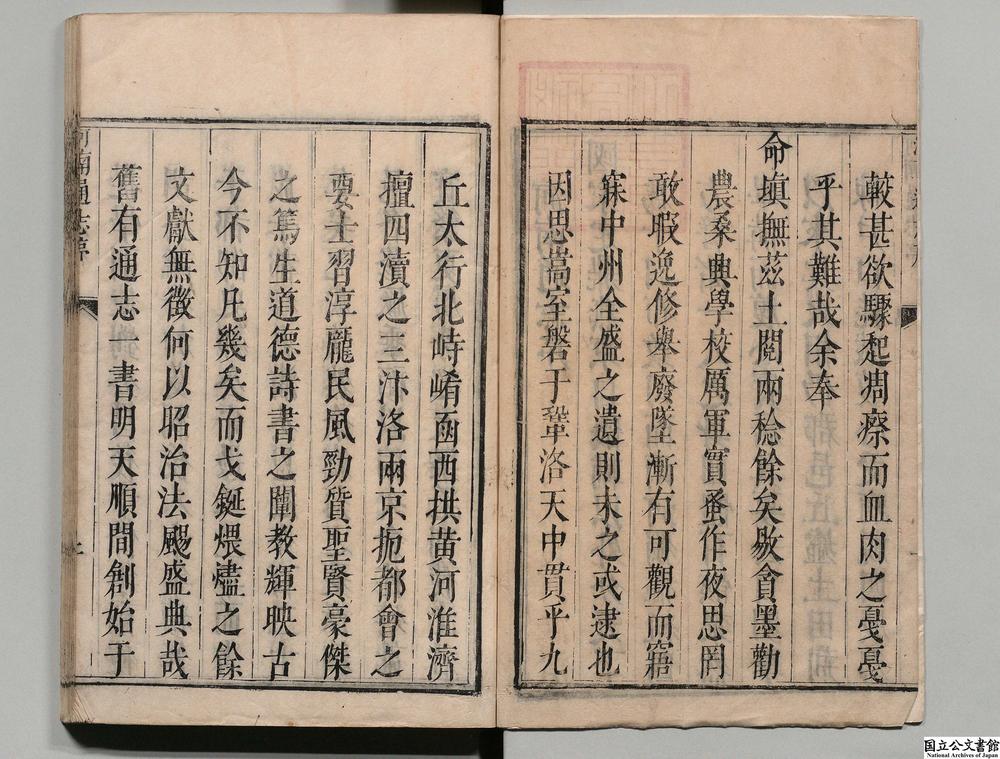 較甚欲驟起凋瘵而血肉之戞戞
乎其難哉余奉
命塡撫茲土閱兩稔餘矣敭貪墨勸
農桑興學校厲軍實蚤作夜思罔
敢暇逸修舉廢墜漸有可觀而寤
寐中州全盛之遺則未之或逮也
因思嵩室磐于鞏洛天中貫乎九
丘太行北峙崤函西拱黃河淮濟
擅四瀆之三汴洛兩京扼都會之
要士習淳龐民風勁質聖賢豪傑
之篤生道德詩書之闡教輝映古
今不知凡幾矣而戈鋋煨燼之餘
文獻無徵何以昭治法颺盛典哉
舊有通志一書明天順間創始于
河南通志序
国立公文書館
National Archives of Japan